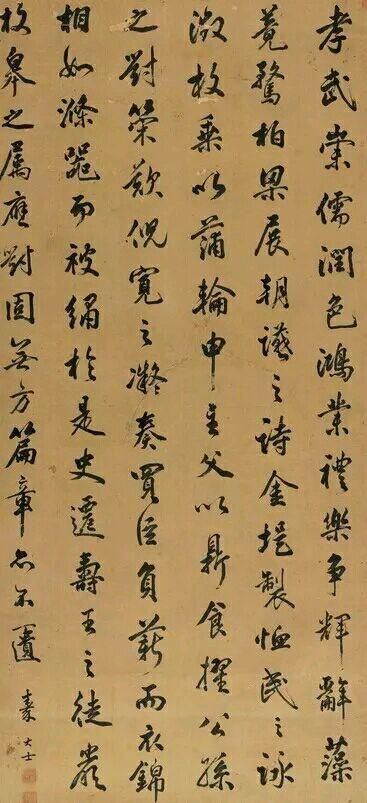 孝武崇儒潤色鴻業禮樂爭輝辭藻
竟騖柏梁展朝讌之詩金堤製恤民之詠
徵枚乘以蒲輪申主父以鼎食擢公孫
之對策歎倪寬之凝奏買臣負薪而衣錦
相如滌器而被繡於是史遷壽王之徒嚴
枚皋之屬應對固無方篇章亦不匱
秦大士